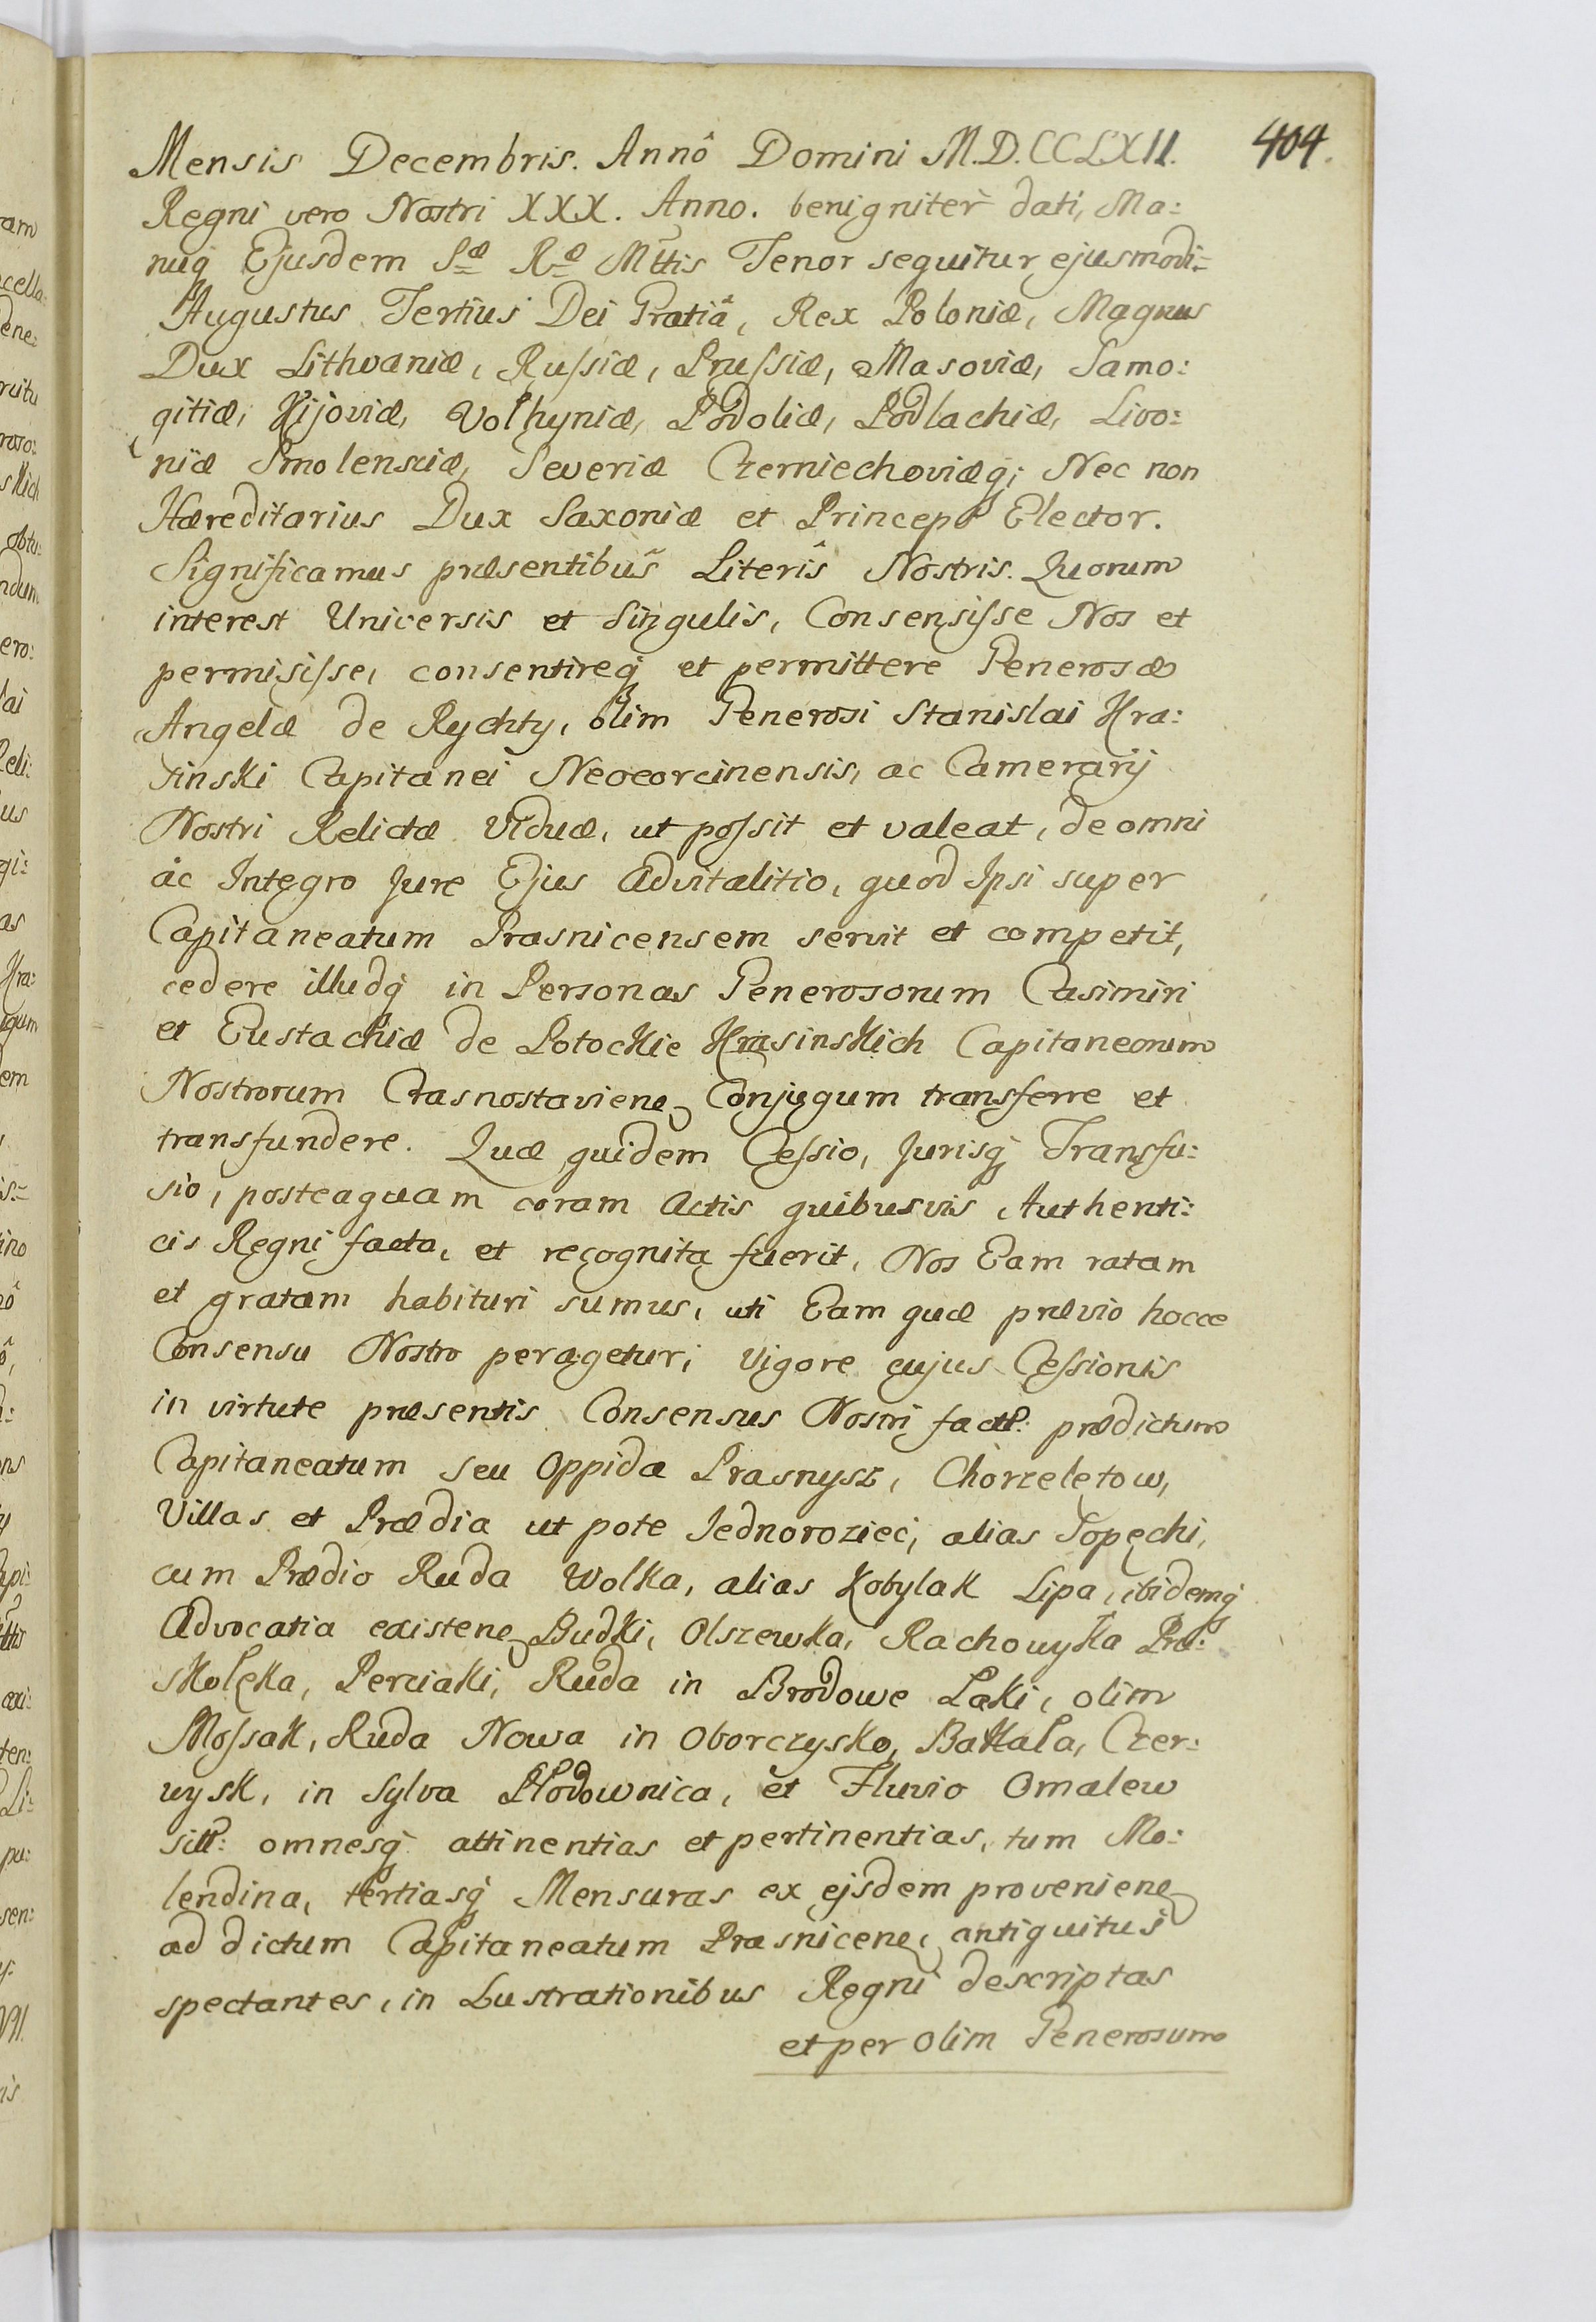 Mensis Decembris. Annô Domini M.D.CCLXII. 404.
Regni vero Nostri XXX. Anno. benigniter dati, Ma:
nuq Ejusdem Sæ Ræ Mttis Tenor sequitur ejusmodi=
Augustus Tertius Dei Gratiâ, Rex Poloniæ, Magnus
Dux Lithvaniæ, Russiæ, Prussiæ, Masoviæ, Samo:
gitiæ, Kijoviæ, Volhyniæ, Podoliæ, Podlachiæ, Livo:
niæ Smolensciæ, Severiæ Czerniechoviæq; Nec non
Hæreditarius Dux Saxoniæ et Princeps Elector.
Significamus præsentibus Literis Nostris. Quorum
interest Universis et Singulis, Consensisse Nos et
permisisse, consentireq et permittere Generosæ
Angelæ de Rychty, olim Generosi Stanislai Kra:
sinski Capitanei Neocorcinensis, ac Camerarij
Nostri Relictæ Viduæ, ut possit et valeat, de omni
ac Integro Jure Ejus Advitalitio, quod Ipsi super
Capitaneatum Prasnicensem servit et competit,
cedere illudq in Personas Generosorum Casimiri
et Eustachiæ de Potockie Krasinskich Capitaneorum
Nostrorum Crasnostaviene Conjugum transferre et
transfundere. Quæ quidem Cessio, Jurisq Transfu:
sio, posteaquam coram Actis quibusvis Authenti:
cis Regni facta, et recognita fuerit, Nos Eam ratam
et gratam habituri sumus, uti Eam quæ prævio hocce
Consensu Nostro perageturi Vigore cujus Cessionis
in virtute præsentis Consensus Nostri prædictum
Capitaneatum seu Oppida Prasnysz, Chorzeletow,
Villas et Prædia ut pote Jednoroziec, alias Sopęchi,
cum Prædio Ruda Wolka, alias Kobylak Lipa, ibidemq
Advocatia existene Budki, Olszewka, Rachouyka Pru:
skołęka, Perciaki, Ruda in Brodowe Łąki, olim
Mossak, Ruda Nowa in Oborczysko, Bakała, Czer:
uysk, in Sylva Płodownica, et Fluvio Omalew
sitt: omnesq attinentias et pertinentias, tum Mo:
lendina, tertiasq Mensuras ex ejsdem proveniene
ad dictum Capitaneatum Prasnicene, antiquitus
spectantes, in Lustrationibus Regni descriptas
et per olim Generosum